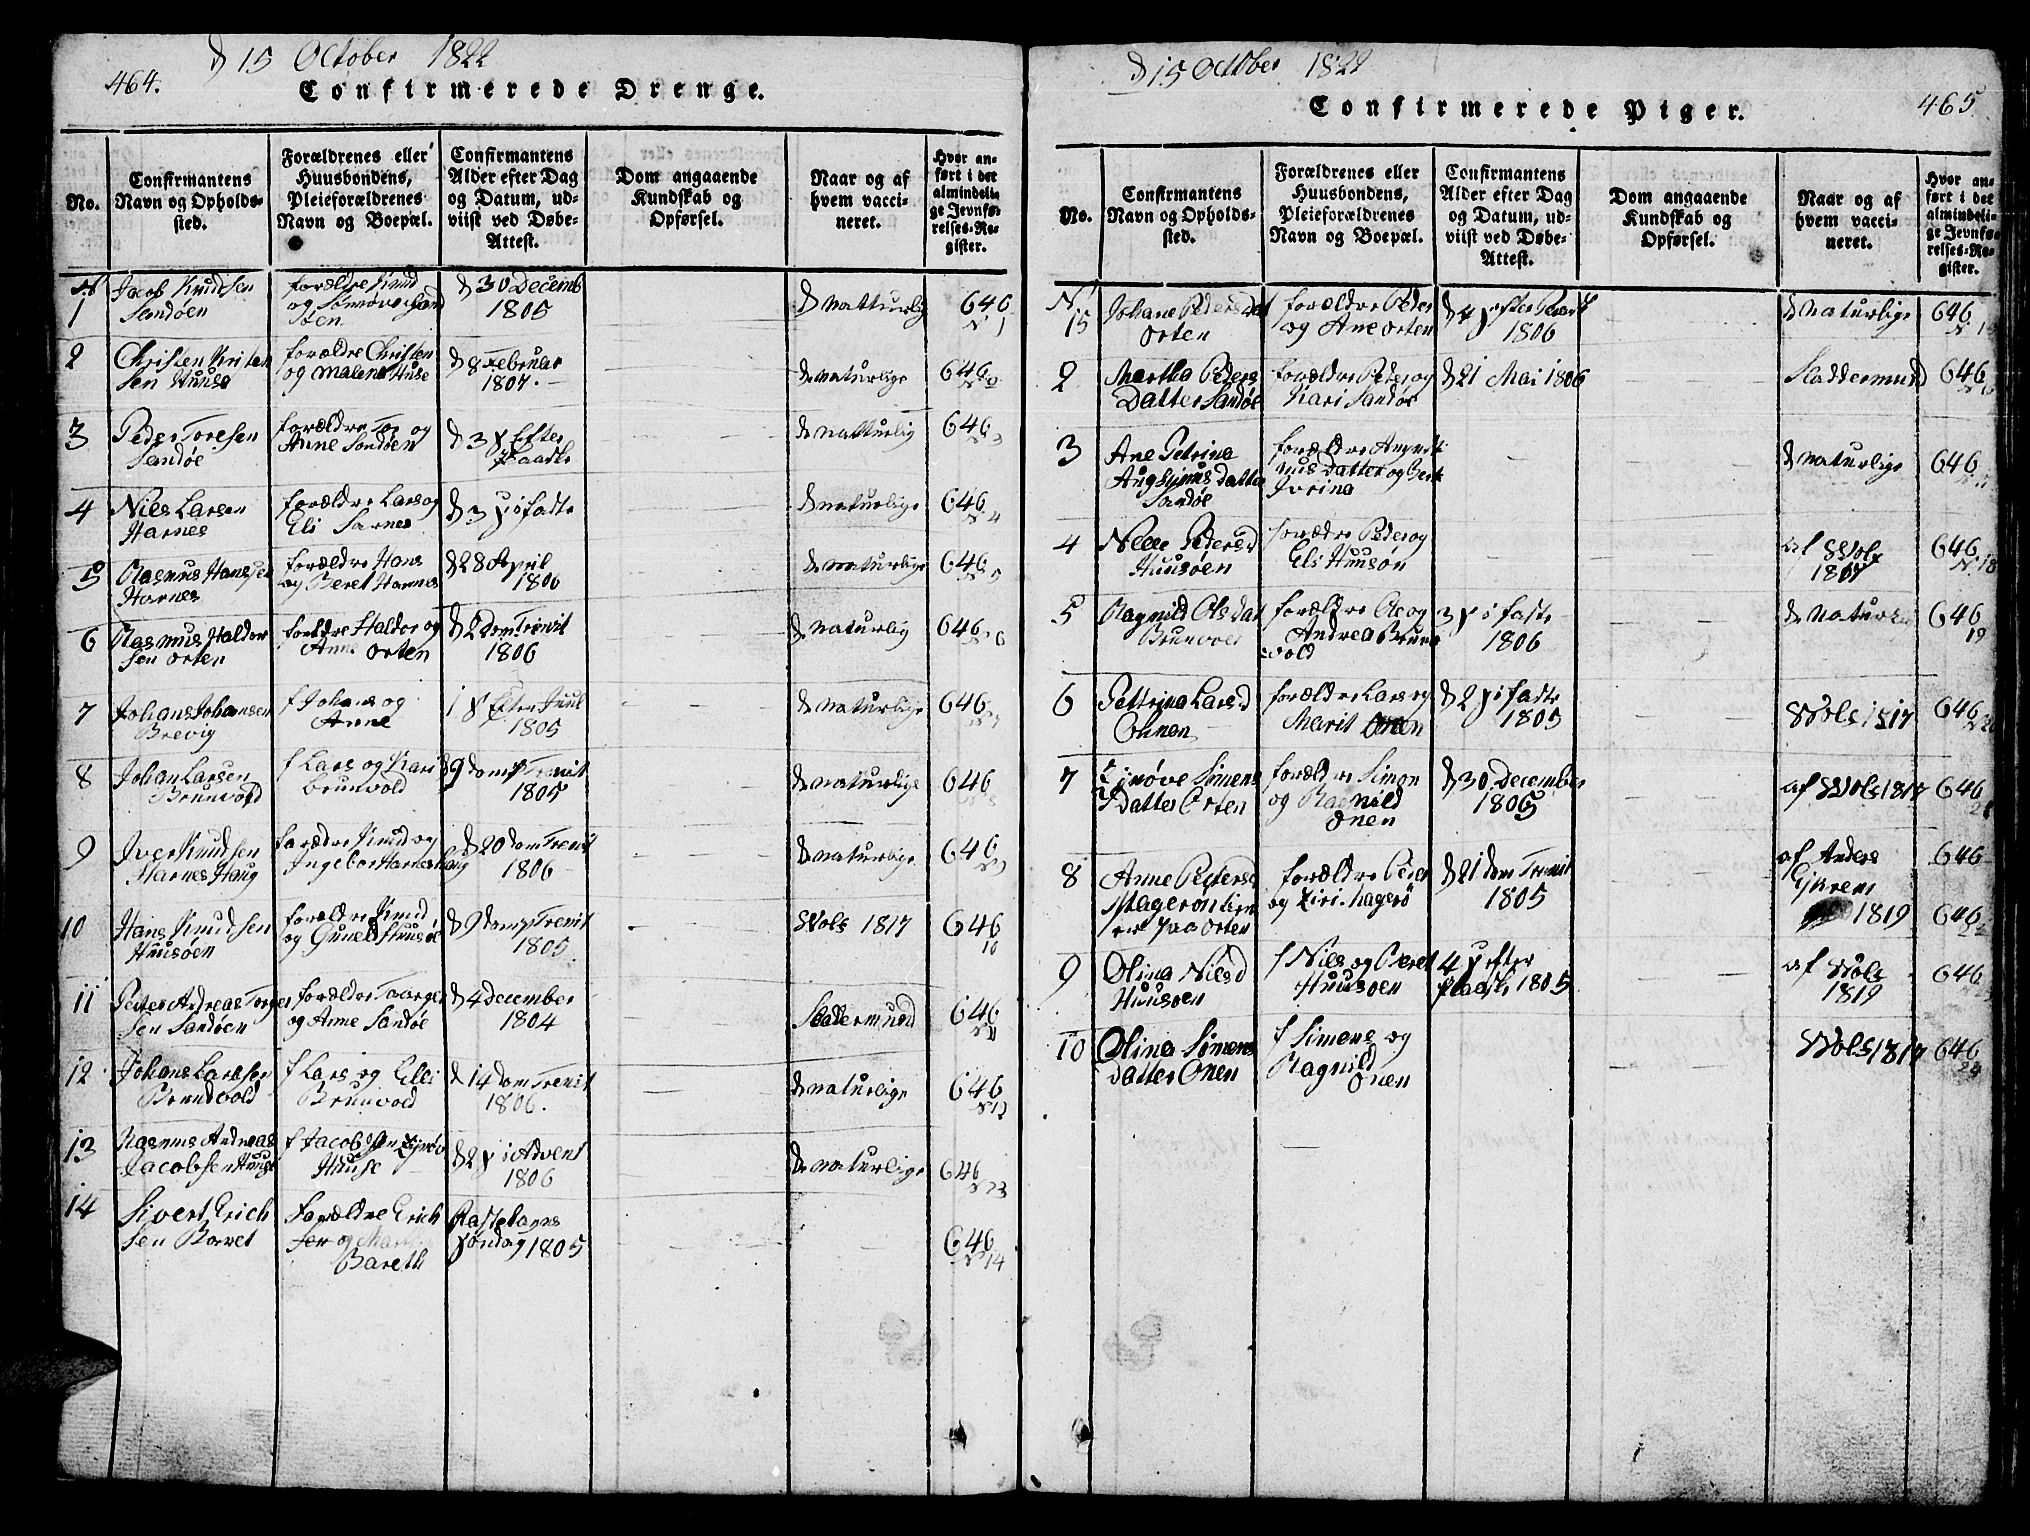 464.
d 15 October 1822
Confirmerede Drenge.
No.
Confirmantens Navn og Opholds-
sted.
Forældrenes eller
Huusbondens,
Pleieforældrenes
Navn og Boepæl.
Confirmantens
Alder efter Dag
og Datum, ud-
viist ved Døbe-
Attest.
Dom angaaende
Kundskab og
Opførsel.
Naar og af
hvem vacci-
neret.
Hvor an-
ført i det
almindeli-
ge Jevnfø-
relses-Re-
gister.
1
Jacob Knudsen
Sandøen
forældre Knud
og
d 30 Decemb
1805
d natturlig
646
N 1
2
Christen Kristen
sen Huuse
forældre Christen
og Malene Huse
d 8 Februar
1807.
d naturlige
646
3
Peder Toresen
Sandøe
forældre Tor og
Anne Sandøen
d 3 S Efter
Paaske
d natturlig
646
N 3
4
Niels Larsen
Harnes
forældre Lars og
Eli Harnes
d 3 S i faste
d naturlige
646
N 4
5
Rasmus Hanssen
Harnes
forældre Hans
og Beret Harnes
d 28 April
1806
d naturlige
646
6
Rasmus Haldor
sen Orten
foreldre Haldor og
Anne Orten
d 2 dom Trenit
1806
d naturlig
646
7
Johans Johansen
Brevig
f Johans og
Anne
1 S Efter Juul
1805
d naturlige
646
8
Johan Larsen
Brunvold
f Lars og Kari
Brunvold
9 dom p Trenit
1805
d naturlige
646
9
Iver Knudsen
Harnes Haug
forældre Knud og
Ingebor Harneshaug
d 20 dom Trenit
1806
d naturlige
646
10
Hans Knudsen
Huusøen
forældre Knud
og Guneld Huusøe
d 9 dom p Trenit
1805
Wols 1817
646
10
11
Peter Andreas Torger
sen Sandøen
forældre Taarger
og Anne Sandøe
d 4 december
1804
646
12
Johans Larssen
Brundvold
f Lars og Elli
Brunvold
d 14 dom Trenit
1806.
d naturlige
646
N 12
13
Rasmus Andreas
Jacobsen Huuse
f Jacob
Huuse
d 2 S i Advent
1806
d naturlige
646
14
Sivert Erich
sen Baret
Forældre Erich
sen og
Bareth
Fastelavns
Søndag 1805
646
N 14
d 15 October 1822
Confirmerede Piger.
465
No.
Confirmantens
Navn og Opholds-
sted.
Forældrenes eller
Huusbondens,
Pleieforældrenes
Navn og Boepæl.
Confirmantens
Alder efter Dag
og Datum, ud-
viist ved Døbe-
Attest.
Dom angaaende
Kundskab og
Opførsel.
Naar og af
hvem vacci-
neret.
Hvor an-
ført i det
almindeli-
ge Jevnfø-
relses-Re-
gister.
15
Johane Peders dat
Orten
forældre Peder
og Ane Orten
1806
d naturlige
646
2
Martha Peders
Datter Sandøe
forældre Peder og
Kari Sandøe
d 21 Mai 1806
646
3
Ane Petrina
Datter
Sandøe
forældre
d naturlige
646
4
Peders d
Huusøen
forældre Peder og
Eli Huusøn
af Wols
1807
646
N. 18
5
Ragnild Ols Dat
Brunvold
forældre Ole og
Andrea Brun
vold
3 S i faste
1806
d natur
646
19
6
Pettrina Lars d
Ohnen
forældre Lars og
Marit Onen
d 2 S i faste
1805
Wols 1817
646
7
Zinøve Simens
Datter Orten
forældre Simon
og Ragnild
Onen
d 30 December
1805
af Wols 1817
646
8
Anne Peders
Magerøn
paa Orten
forældre Peder
og Ziri Magerø
d 21 dom Trenit
1805
af Anders
Gjkrem
1819
646
646
9
Olina Nils d
Huusøen
f Niels og Beret
Huusøen
4 S efter
Paaske 1805
af Wols
1819
646
10
Olina Simens
datter Onen
f Simens og
Ragnild
Onen
Wols 1817
646
24